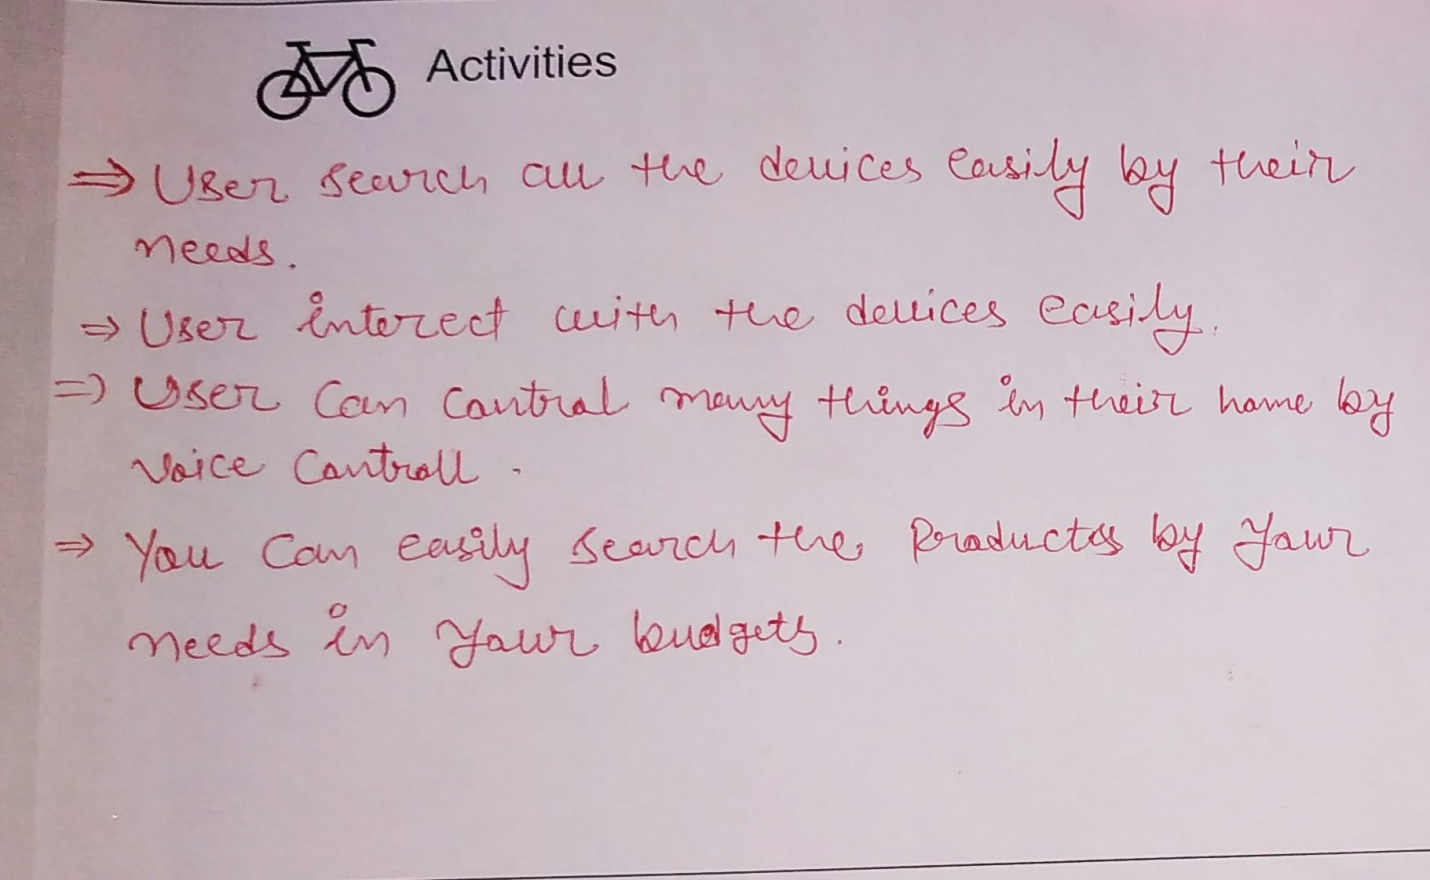 Activities
⇒ User search all the devices easily by their
needs.
⇒ User interect with the devices easily.
⇒ User can control many things in their home by
voice controll.
⇒ You can easily search the products by your
needs in your budgets.